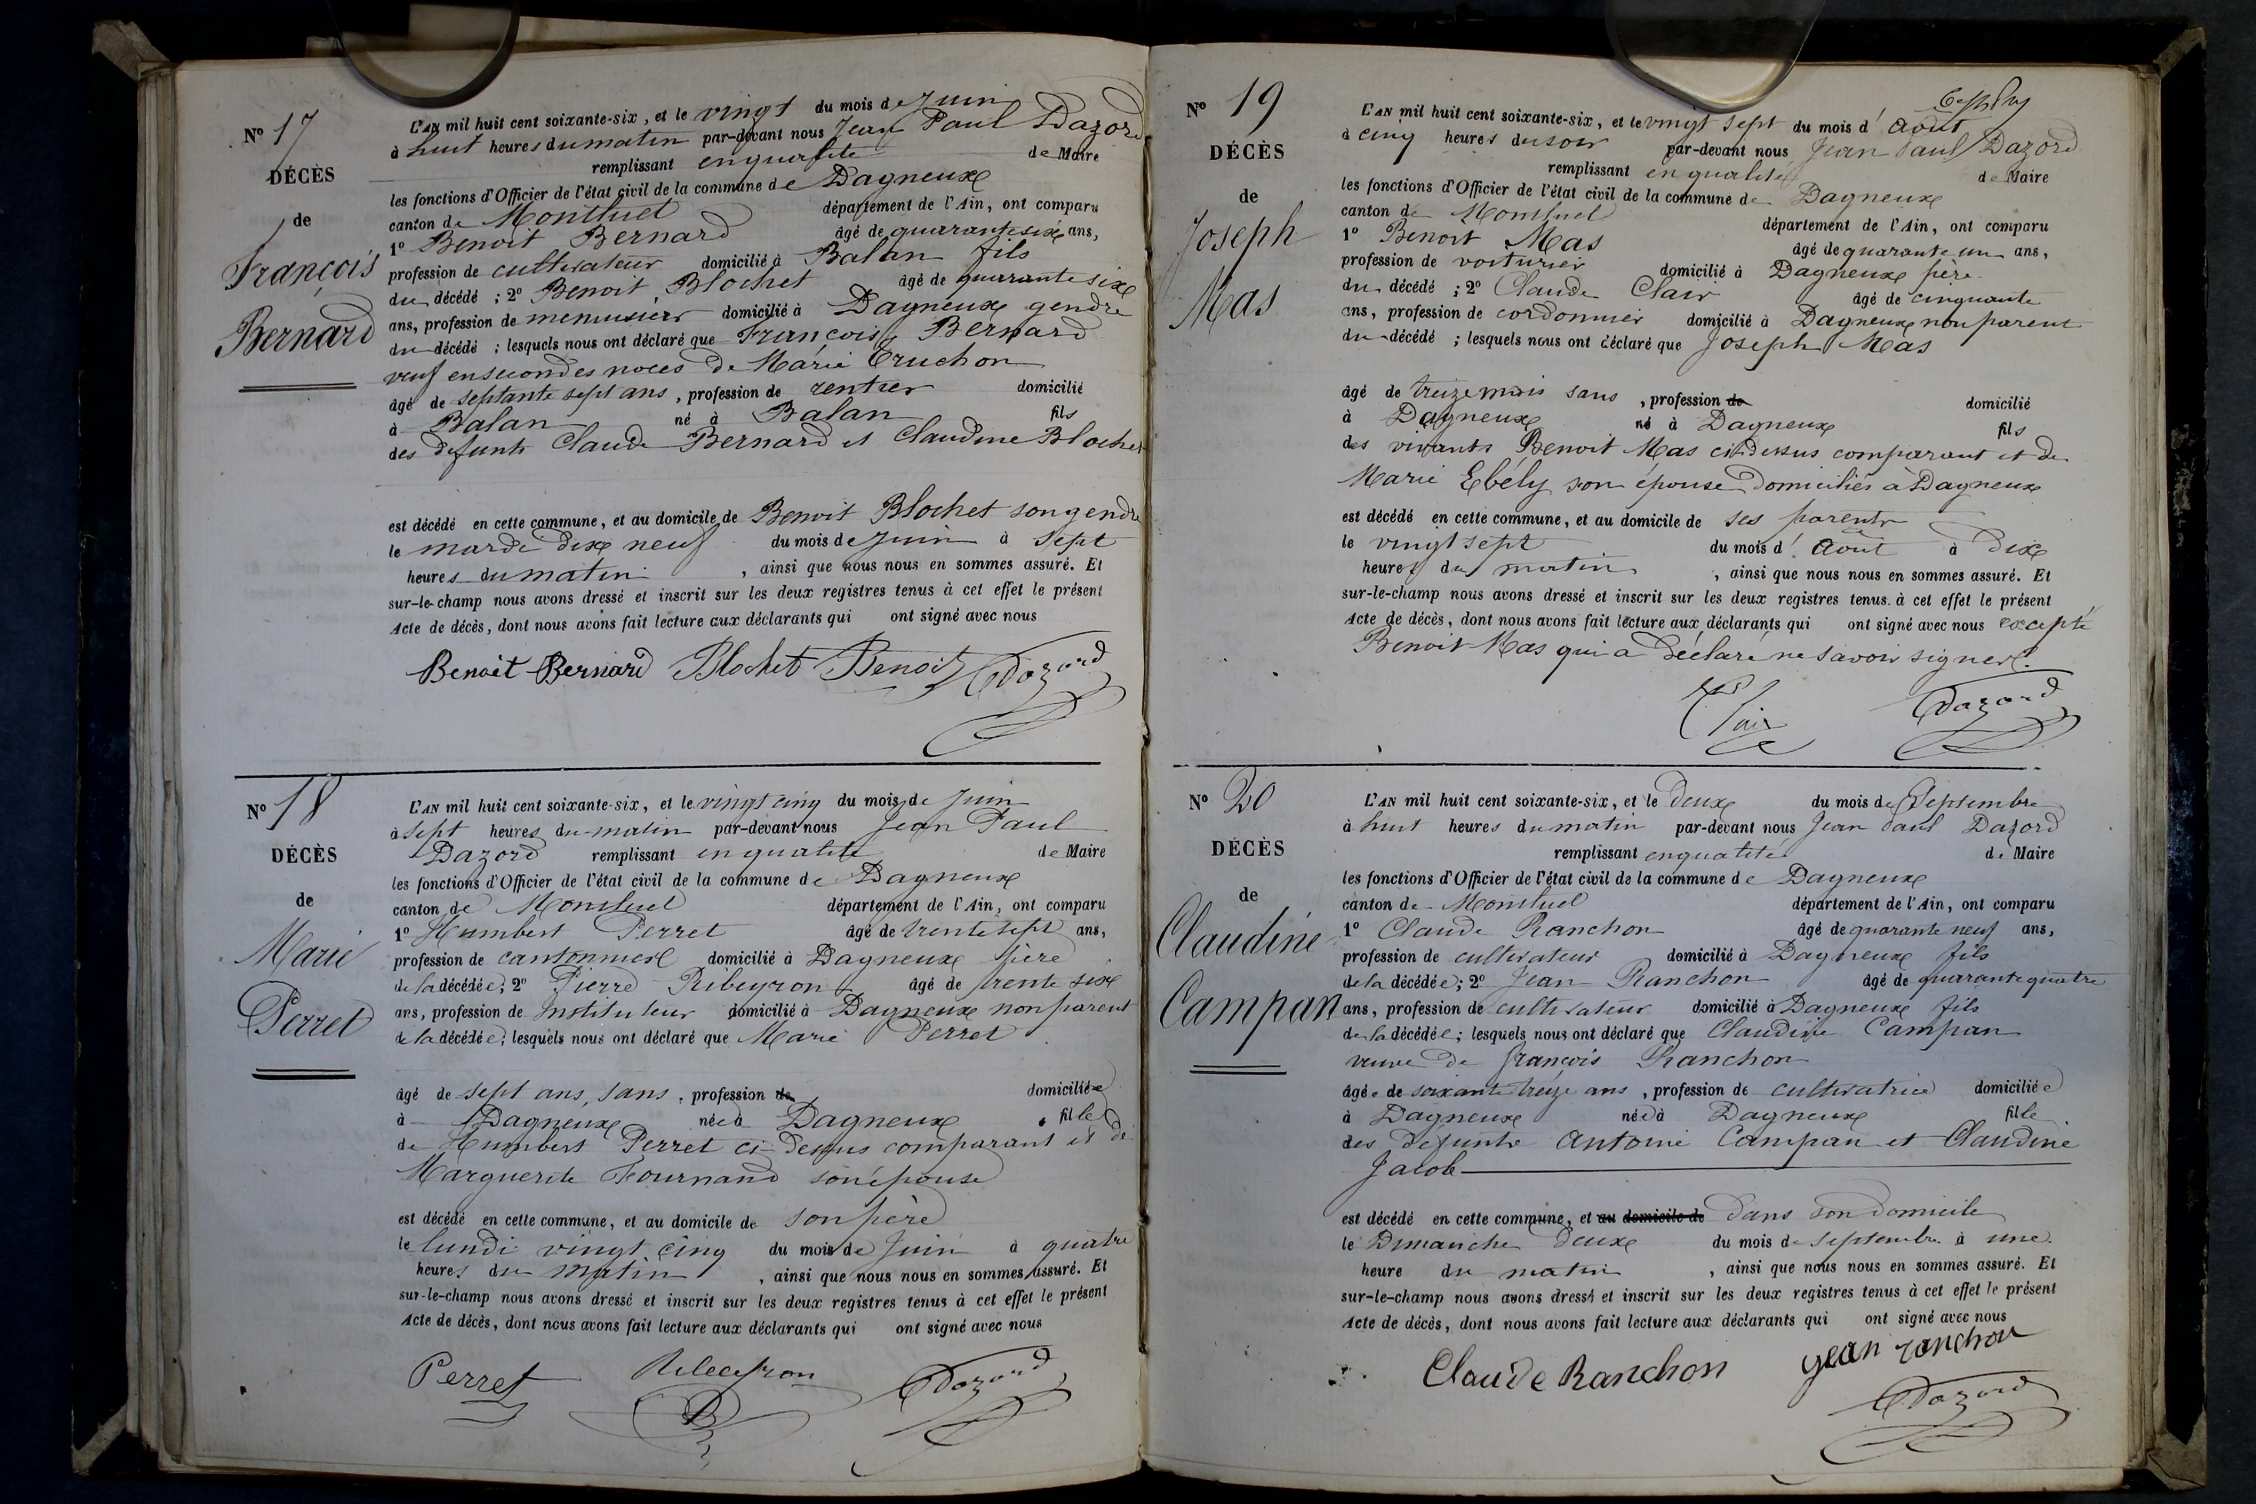 N° 17
DÉCÈS
de
François
Bernard
L'AN mil huit cent soixante-six, et le vingt du mois de Juin
à huit heures du matin par-devant nous Jean Paul Dazord
remplissant en qualité de Maire
les fonctions d'Officier de l'état civil de la commune de Dagneux
canton de Montluel département de l'Ain, ont comparu
1° Benoit Bernard âgé de quarante six ans,
profession de cultivateur domicilié à Balan fils
du décédé ; 2° Benoit Blochet âgé de quarante six
ans, profession de menuisier domicilié à Dagneux gendre
du décédé ; lesquels nous ont déclaré que François Bernard
veuf en secondes noces de Marie Truchon
âgé de septante sept ans, profession de rentier domicilié
à Balan né à Balan fils
des defunts Claude Bernard et Claudine Blochet
est décédé en cette commune, et au domicile de Benoit Blochet son gendre
le mardi dix neuf du mois de Juin à sept
heures du matin, ainsi que nous nous en sommes assuré. Et
sur-le-champ nous avons dressé et inscrit sur les deux registres tenus à cet effet le présent
Acte de décès, dont nous avons fait lecture aux déclarants qui ont signé avec nous
Benoit Bernard Blochet Benoit Dazord
N° 18
DÉCÈS
de
Marie
Perret
L'AN mil huit cent soixante-six, et le vingt cinq du mois de Juin
à sept heures du matin par-devant nous Jean Paul
Dazord remplissant en qualité de Maire
les fonctions d'Officier de l'état civil de la commune de Dagneux
canton de Montluel département de l'Ain, ont comparu
1° Humbert Perret âgé de trente sept ans,
profession de cantonnier domicilié à Dagneux père
de la décédée ; 2° Pierre Ribeyron âgé de trente six
ans, profession de Instituteur domicilié à Dagneux non parent
de la décédée ; lesquels nous ont déclaré que Marie Perret
âgé de sept ans, sans, profession de domiciliée
à Dagneux née à Dagneux fille
de Humbert Perret ci-dessus comparant et de
Marguerite Fournand son épouse
est décédé en cette commune, et au domicile de son père
le lundi vingt cinq du mois de Juin à quatre
heures du matin, ainsi que nous nous en sommes assuré. Et
sur-le-champ nous avons dressé et inscrit sur les deux registres tenus à cet effet le présent
Acte de décès, dont nous avons fait lecture aux déclarants qui ont signé avec nous
Perret Ribeyron Dazord
N° 19
DÉCÈS
de
Joseph
Mas
L'AN mil huit cent soixante-six, et le vingt sept du mois d'Août
à cinq heures du soir par-devant nous Jean Paul Dazord
remplissant en qualité de Maire
les fonctions d'Officier de l'état civil de la commune de Dagneux
canton de Montluel département de l'Ain, ont comparu
1° Benoit Mas âgé de quarante un ans,
profession de voiturier domicilié à Dagneux père
du décédé ; 2° Claude Clair âgé de cinquante
ans, profession de cordonnier domicilié à Dagneux non parent
du décédé ; lesquels nous ont déclaré que Joseph Mas
âgé de treize mois sans, profession de domicilié
à Dagneux né à Dagneux fils
des vivants Benoit Mas ci-dessus comparant et de
Marie Ebély son épouse domiciliés à Dagneux
est décédé en cette commune, et au domicile de ses parents
le vingt sept du mois d'Août à dix
heures du matin, ainsi que nous nous en sommes assuré. Et
sur-le-champ nous avons dressé et inscrit sur les deux registres tenus à cet effet le présent
Acte de décès, dont nous avons fait lecture aux déclarants qui ont signé avec nous excepté
Benoit Mas qui a déclaré ne savoir signer.
Clair Dazord
N° 20
DÉCÈS
de
Claudine
Campan
L'AN mil huit cent soixante-six, et le deux du mois de Septembre
à huit heures du matin par-devant nous Jean Paul Dazord
remplissant en qualité de Maire
les fonctions d'Officier de l'état civil de la commune de Dagneux
canton de Montluel département de l'Ain, ont comparu
1° Claude Ranchon âgé de quarante neuf ans,
profession de cultivateur domicilié à Dagneux fils
de la décédée ; 2° Jean Ranchon âgé de quarante quatre
ans, profession de cultivateur domicilié à Dagneux fils
de la décédée ; lesquels nous ont déclaré que Claudine Campan
veuve de François Ranchon
âgée de soixante treize ans, profession de cultivatrice domiciliée
à Dagneux née à Dagneux fille
des defunts Antoine Campan et Claudine
Jacob
est décédé en cette commune, et au domicile de dans son domicile
le Dimanche deux du mois de Septembre à une
heure du matin, ainsi que nous nous en sommes assuré. Et
sur-le-champ nous avons dressé et inscrit sur les deux registres tenus à cet effet le présent
Acte de décès, dont nous avons fait lecture aux déclarants qui ont signé avec nous
Claude Ranchon jean ranchon
Dazord